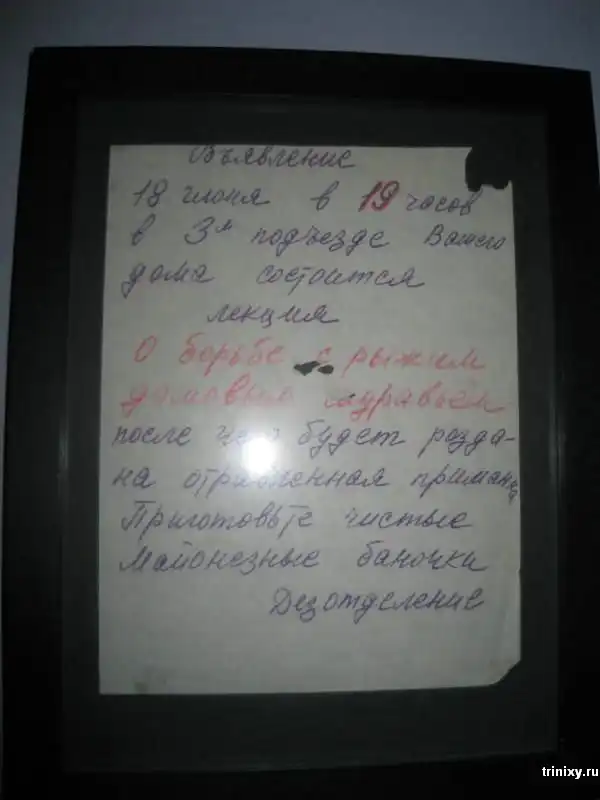 Объявление
18 июня в 19 часов
в 3м подъезде Вашего
дома состоится
лекция
О борьбе с рыжим
домовым муравьём
после чего будет розда-
на отравленная приманка
Приготовьте чистые
Майонезные баночки
Дезотделение
trinixy.ru